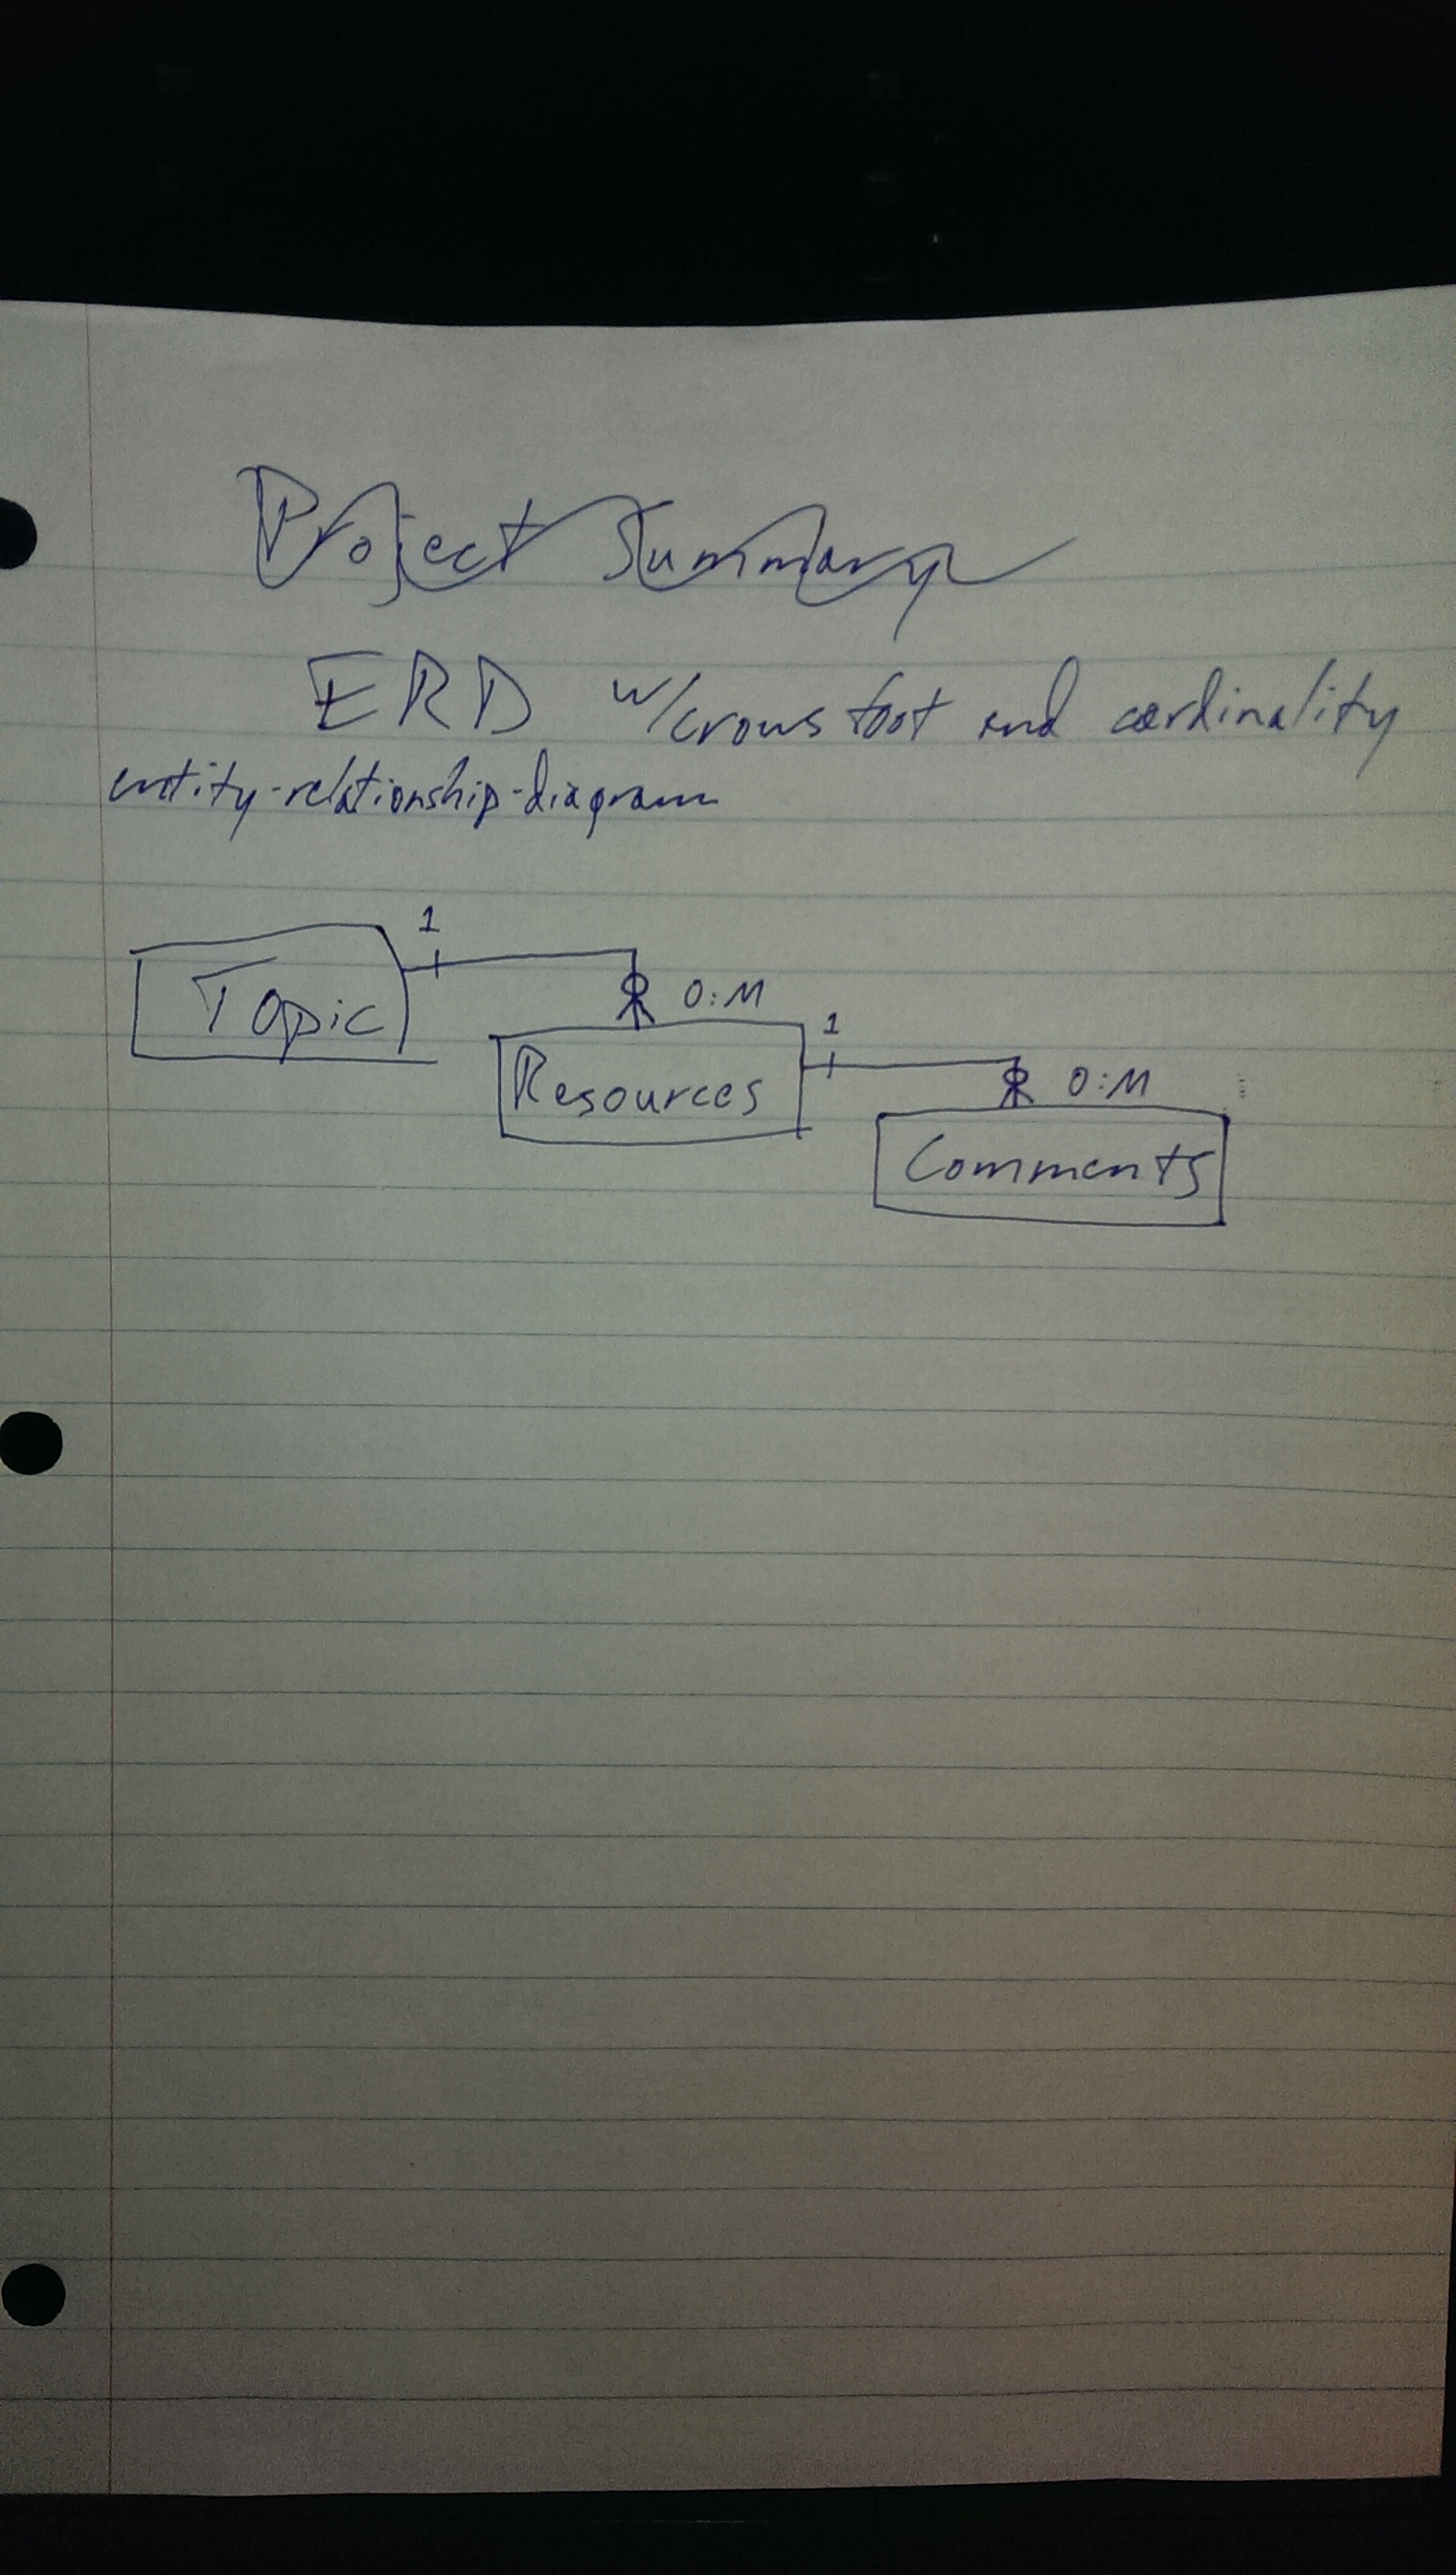 Project Summary
ERD w/crows foot and cardinality
entity-relationship-diagram
1
Topic
0:M
Resources
1
0:M
Comments